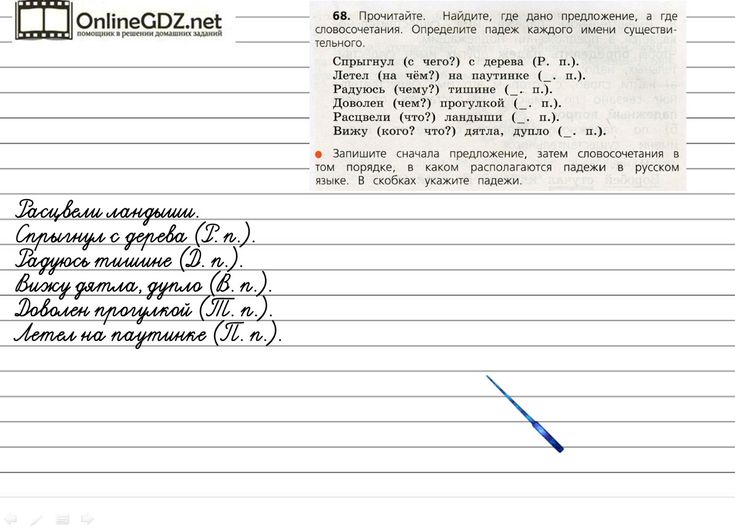 OnlineGDZ.net
помощник в решении домашних заданий
68. Прочитайте. Найдите, где дано предложение, а где
словосочетания. Определите падеж каждого имени существи-
тельного.
Спрыгнул (с чего?) с дерева (Р. п.).
Летел (на чём?) на паутинке (_. п.).
Радуюсь (чему?) тишине (_. п.).
Доволен (чем?) прогулкой (_. п.).
Расцвели (что?) ландыши (_. п.).
Вижу (кого? что?) дятла, дупло (_. п.).
Запишите сначала предложение, затем словосочетания в
том порядке, в каком располагаются падежи в русском
языке. В скобках укажите падежи.
Расцвели ландыши.
Спрыгнул с дерева (Р. п.).
Радуюсь тишине (Д. п.).
Вижу дятла, дупло (В. п.).
Доволен прогулкой (Т. п.).
Летел на паутинке (П. п.).